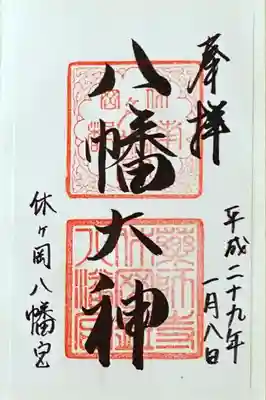 奉拝
平成二十九年
一月八日
八幡大神
休ヶ岡八幡宮